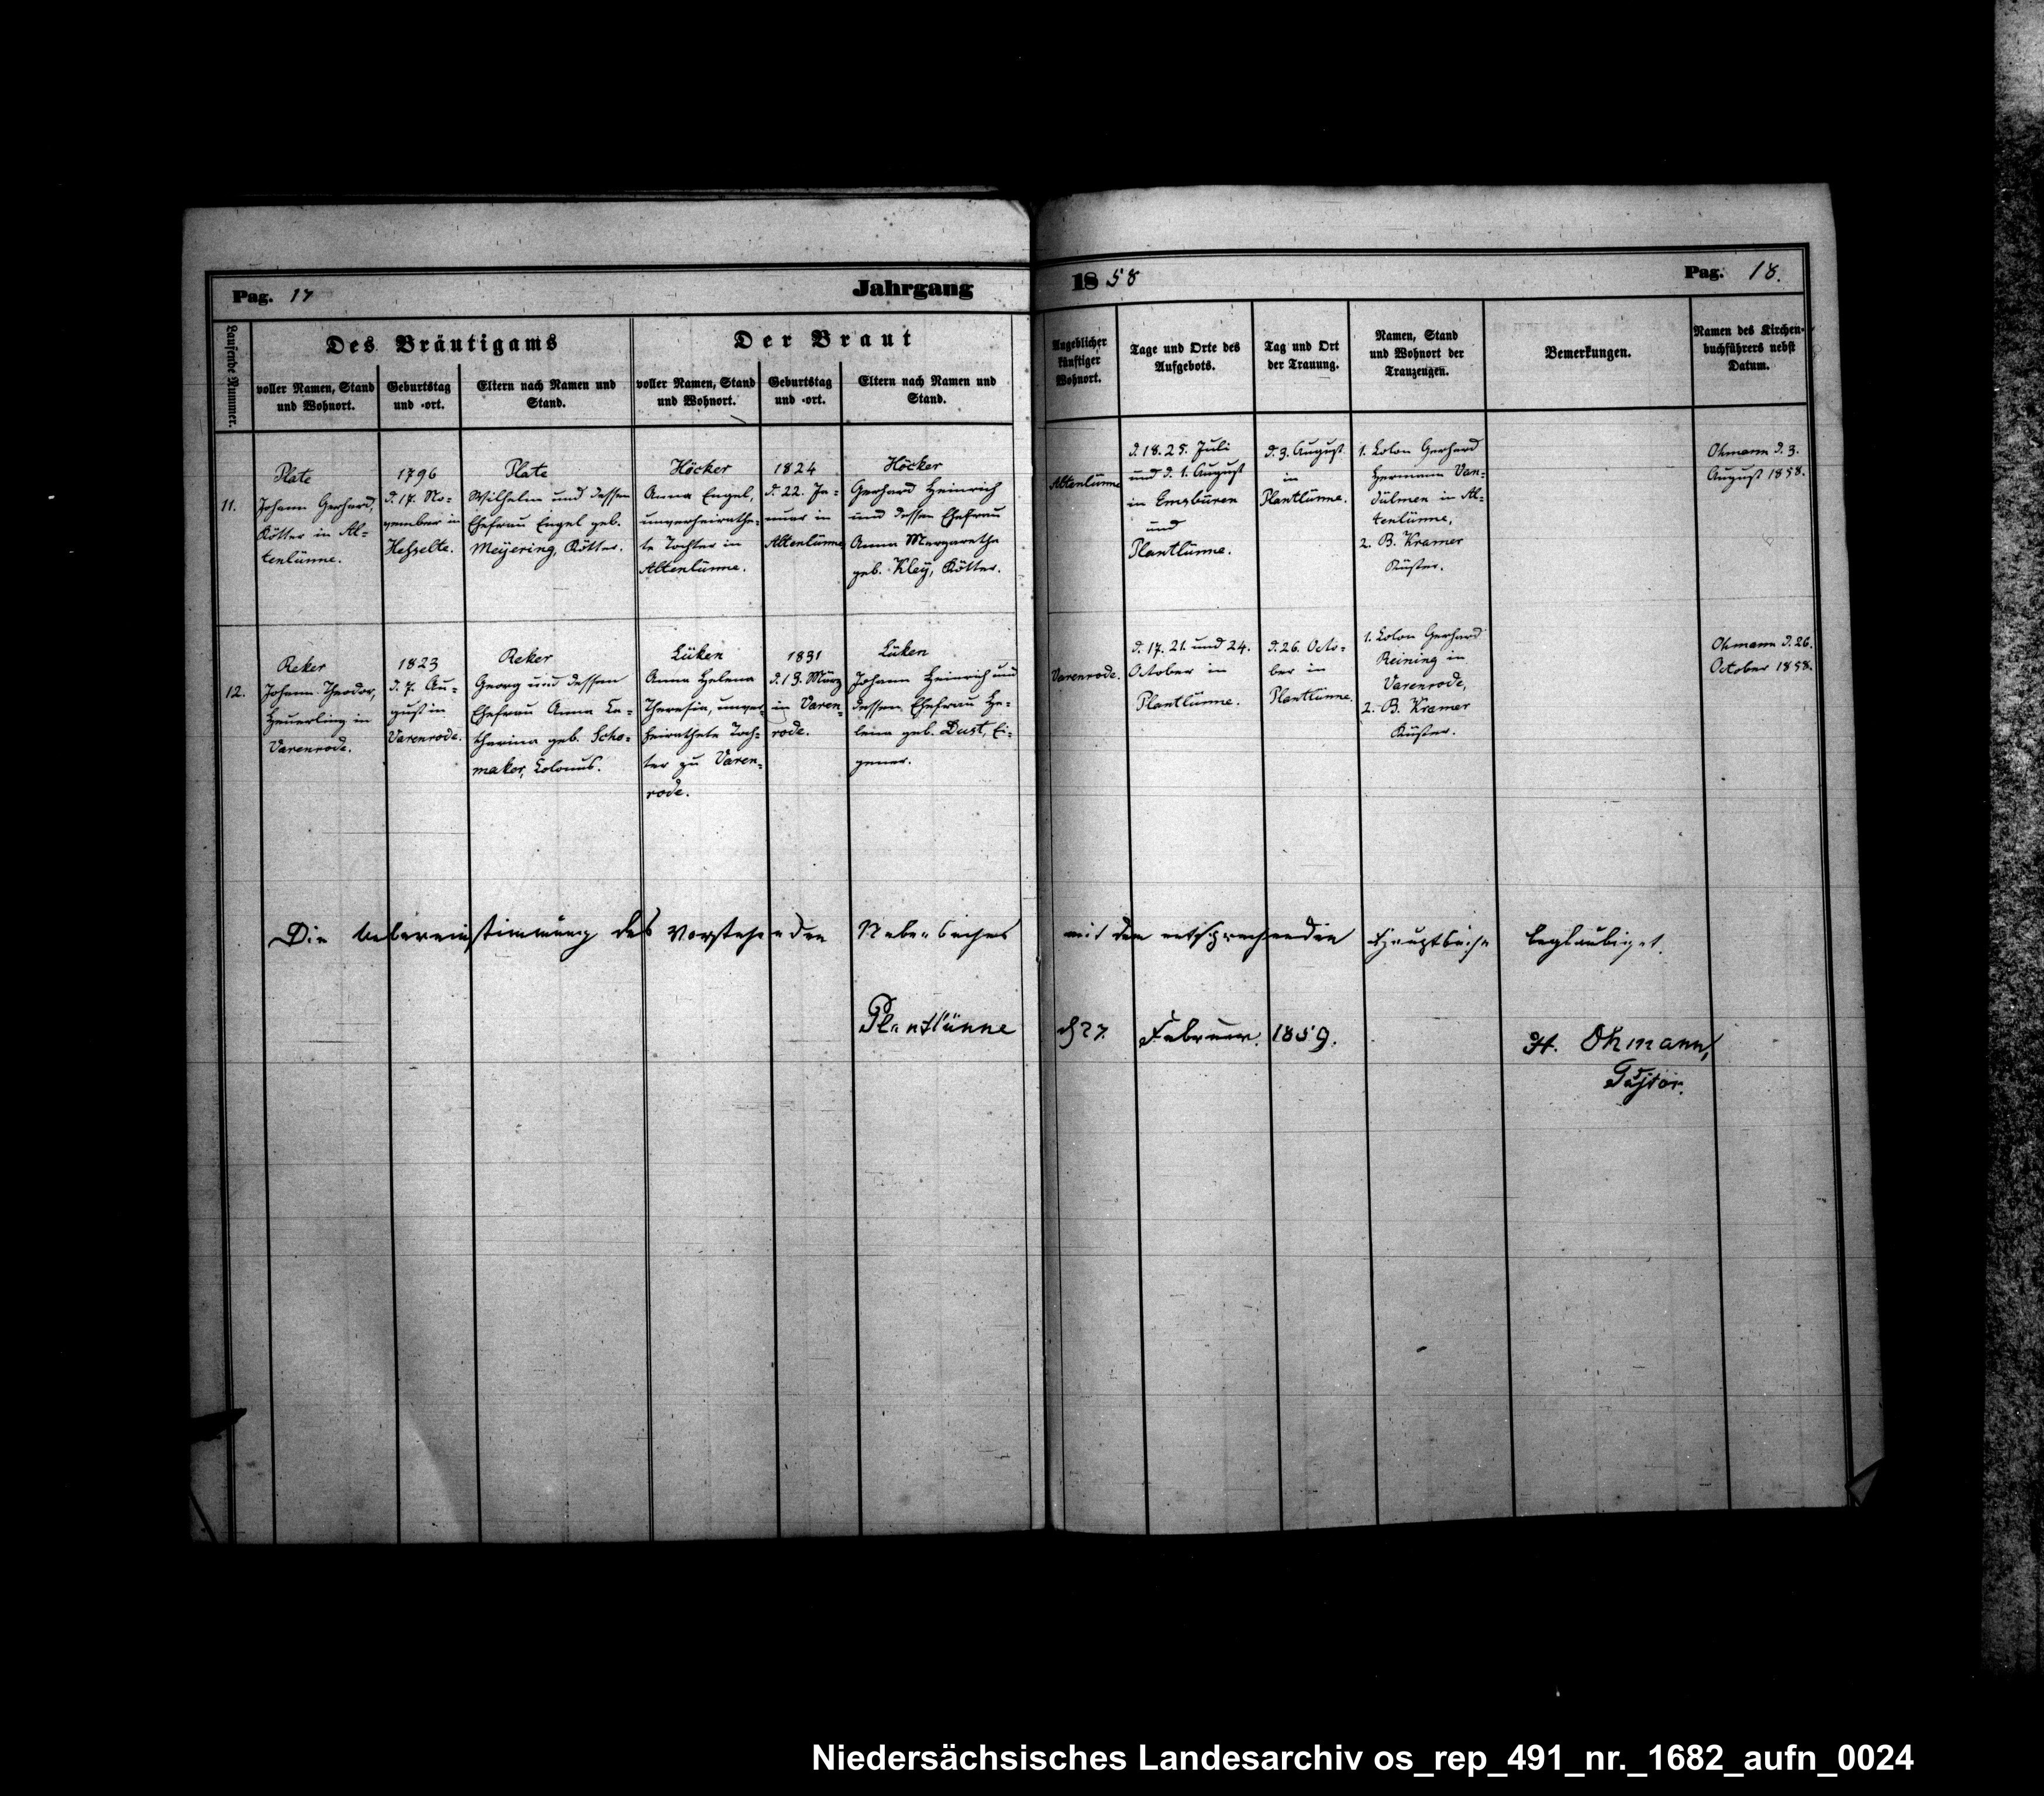 Pag. 17
Jahrgang
1858
Pag. 18.
Laufende Nummer.
Des Bräutigams
voller Namen, Stand
und Wohnort.
Geburtstag
und -ort.
Eltern nach Namen und
Stand.
Der Braut
voller Namen, Stand
und Wohnort.
Geburtstag
und -ort.
Eltern nach Namen und
Stand.
Angeblicher
künftiger
Wohnort.
Tage und Orte des
Aufgebots.
Tag und Ort
der Trauung.
Namen, Stand
und Wohnort der
Trauzeugen.
Bemerkungen.
Namen des Kirchen-
buchführers nebst
Datum.
11.
Plate
Johann Gerhard,
Kötter in Al-
tenlünne.
1796
d. 17. No-
vember in
Hesselte.
Plate
Wilhelm und dessen
Ehefrau Engel geb.
Meÿering, Kötter.
Höcker
Anna Engel,
unverheirathe-
te Tochter in
Altenlünne.
1824
d. 22. Ja-
nuar in
Altenlünne
Höcker
Gerhard Heinrich
und dessen Ehefrau
Anna Margaretha
geb. Kleÿ, Kötter.
Altenlünne
d. 18. 25. Juli
und d. 1. August
in Emsbüren
und
Plantlünne.
d. 3. August
in
Plantlünne.
1. Colon Gerhard
Hermann Van-
dülmen in Al-
tenlünne,
2. B. Kramer
Küster.
Ohmann d. 3.
August 1858.
12.
Reker
Johann Theodor,
Heuerling in
Varenrode.
1823
d. 7. Au-
gust in
Varenrode.
Reker
Georg und dessen
Ehefrau Anna Ca-
tharina geb. Scho-
maker, Colonus.
Lüken
Anna Helena
Theresia, unver-
heirathete Toch-
ter zu Varen-
rode.
1831
d. 13. März
in Varen-
rode.
Lüken
Johann Heinrich und
dessen Ehefrau He-
lena geb. Dust, Ei-
gener.
Varenrode.
d. 17. 21. und 24.
October in
Plantlünne.
d. 26. Octo-
ber in
Plantlünne.
1. Colon Gerhard
Reining in
Varenrode,
2. B. Kramer
Küster.
Ohmann d. 26.
October 1858.
Die Uebereinstimmung des vorstehenden Nebenbuches mit dem entsprechenden Hauptbuche beglaubiget.
Plantlünne d 27. Februar 1859.
H. Ohmann,
Pastor.
Niedersächsisches Landesarchiv os_rep_491_nr._1682_aufn_0024